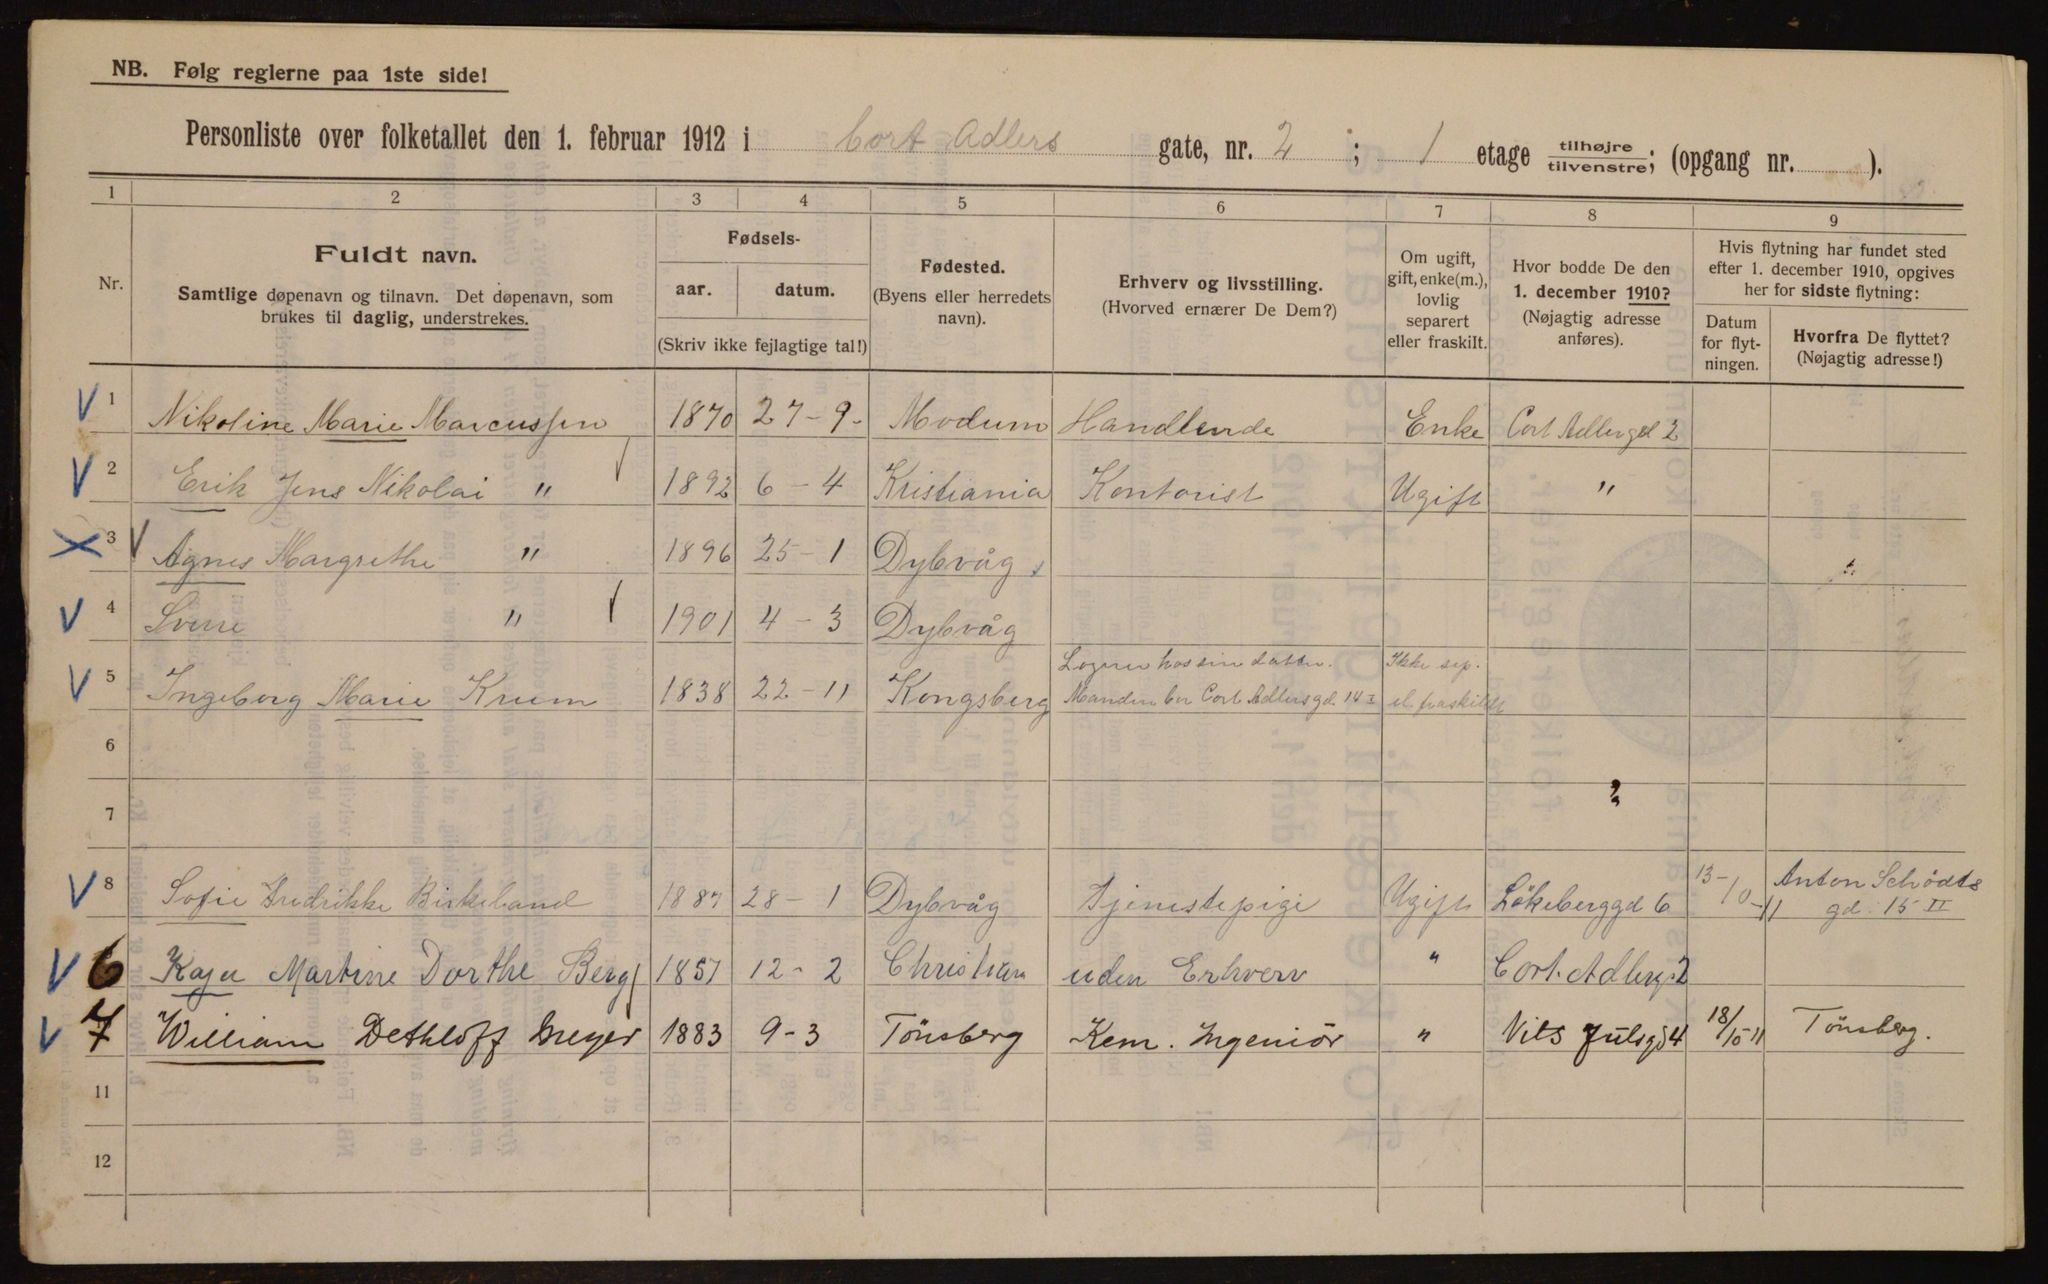 NB. Følg reglerne paa 1ste side!
Personliste over folketallet den 1. februar 1912 i Cort Adlers gate, nr. 2 ; 1 etage tilhøjre/tilvenstre; (opgang nr. ).
1 2 3 4 5 6 7 8 9
Nr.
Fuldt navn.
Samtlige døpenavn og tilnavn. Det døpenavn, som
brukes til daglig, understrekes.
Fødsels-
aar. datum.
(Skriv ikke fejlagtige tal!)
Fødested.
(Byens eller herredets
navn).
Erhverv og livsstilling.
(Hvorved ernærer De Dem?)
Om ugift,
gift, enke(m.),
lovlig
separert
eller fraskilt.
Hvor bodde De den
1. december 1910?
(Nøjagtig adresse
anføres).
Hvis flytning har fundet sted
efter 1. december 1910, opgives
her for sidste flytning:
Datum
for flyt-
ningen.
Hvorfra De flyttet?
(Nøjagtig adresse!)
1 Nikoline Marie Marcussen 1870 27-9- Modum Handlende Enke Cort Adlergd 2
2 Erik Jens Nikolai " 1892 6-4 Kristiania Kontorist Ugift "
3 Agnes Margrethe " 1896 25-1 Dybvåg
4 Sverre " 1901 4-3 Dybvåg
5 Ingeborg Marie Krum 1838 22-11 Kongsberg Logerer hos sin datter. Manden bor Cort Adlersgd. 14 I Ikke sep. el. fraskildt
6
7
8 Sofie Fredrikke Birkeland 1887 28-1 Dybvåg Tjenestepige Ugift Lökeberggd 6 13-/10-11 Anton Schödts gd. 15 II
6 Kaja Martine Dorthe Berg 1857 12-2 Christian uden Erhverv " Cort. Adlerg. 2
7 William Dethloff Meyer 1883 9-3 Tönsberg Kem. Ingeniör " Nils Julsgd 4 18/10 11 Tönsberg.
11
12